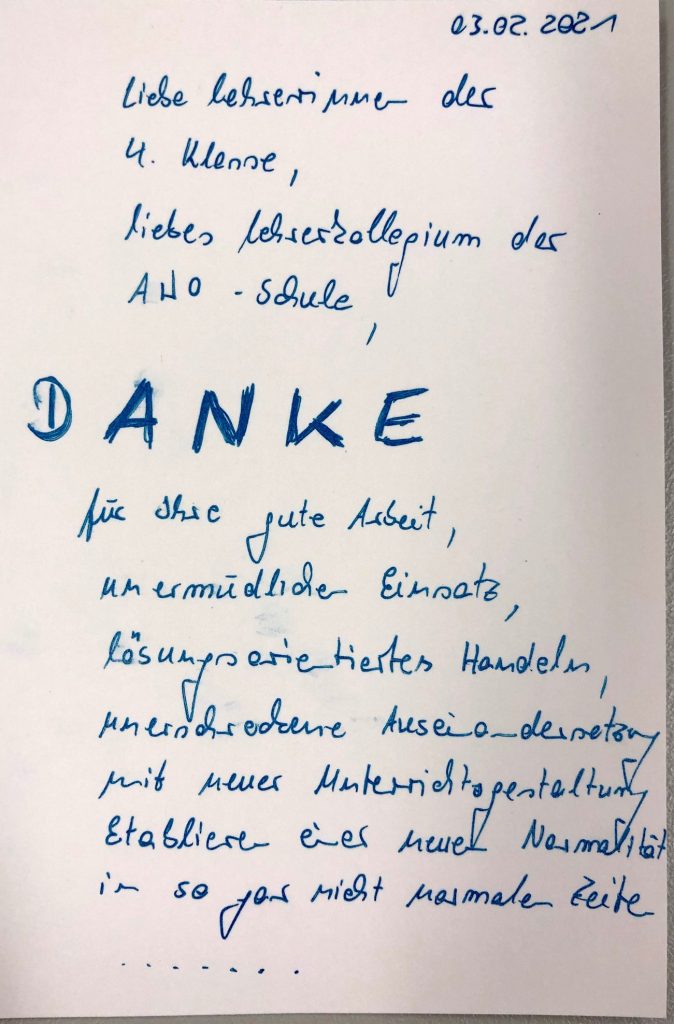 03.02.2021
Liebe Lehrerinnen der
4. Klasse,
liebes Lehrerkollegium der
AWO - Schule,
DANKE
für Ihre gute Arbeit,
unermüdlichen Einsatz,
lösungsorientiertes Handeln,
unerschrockene Auseinandersetzung
mit neuer Unterrichtsgestaltung
Etablieren einer neuen Normalität
in so gar nicht normalen Zeiten
.......